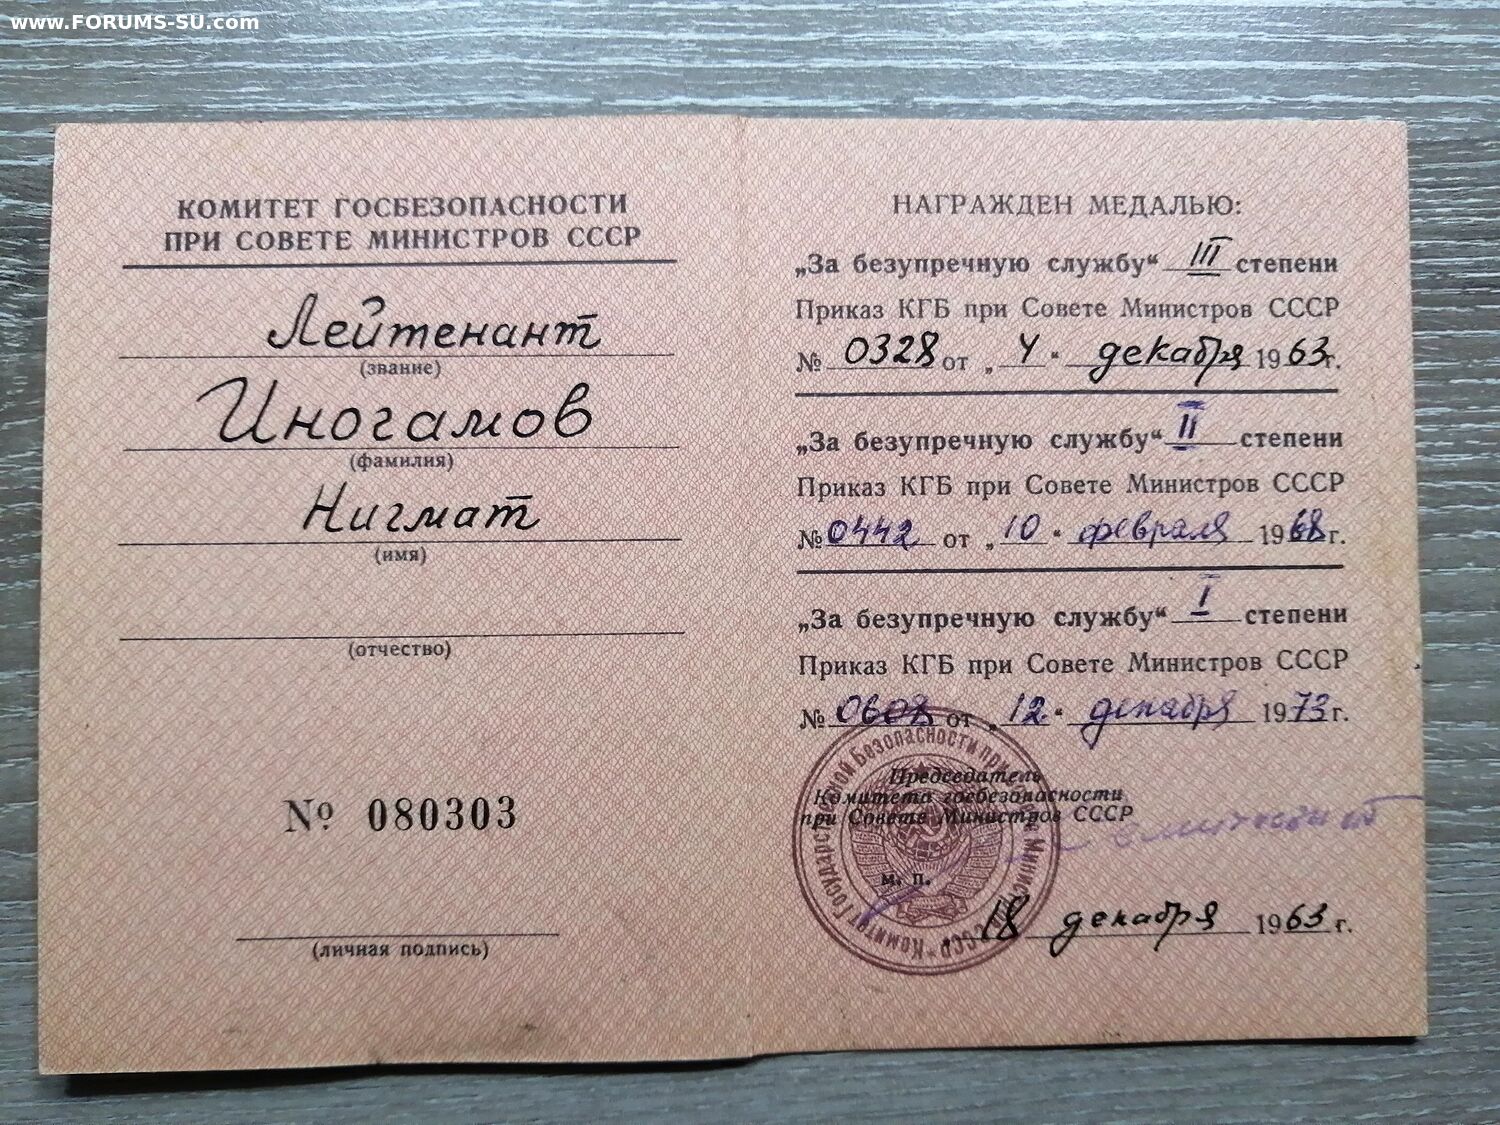 www.FORUMS-SU.com
КОМИТЕТ ГОСБЕЗОПАСНОСТИ
ПРИ СОВЕТЕ МИНИСТРОВ СССР
Лейтенант
(звание)
Иногамов
(фамилия)
Нигмат
(имя)
(отчество)
№ 080303
(личная подпись)
НАГРАЖДЕН МЕДАЛЬЮ:
„За безупречную службу“ III степени
Приказ КГБ при Совете Министров СССР
№ 0328 от „4“ декабря 1963г.
„За безупречную службу“ II степени
Приказ КГБ при Совете Министров СССР
№ 0442 от „10“ февраля 1968г.
„За безупречную службу“ I степени
Приказ КГБ при Совете Министров СССР
№ 0608 от „12.“ декабря 1973г.
Председатель
Комитета госбезопасности
при Совете Министров СССР
м. п.
18 декабря 1963 г.
Комитет Государственной Безопасности при Совете Министров СССР